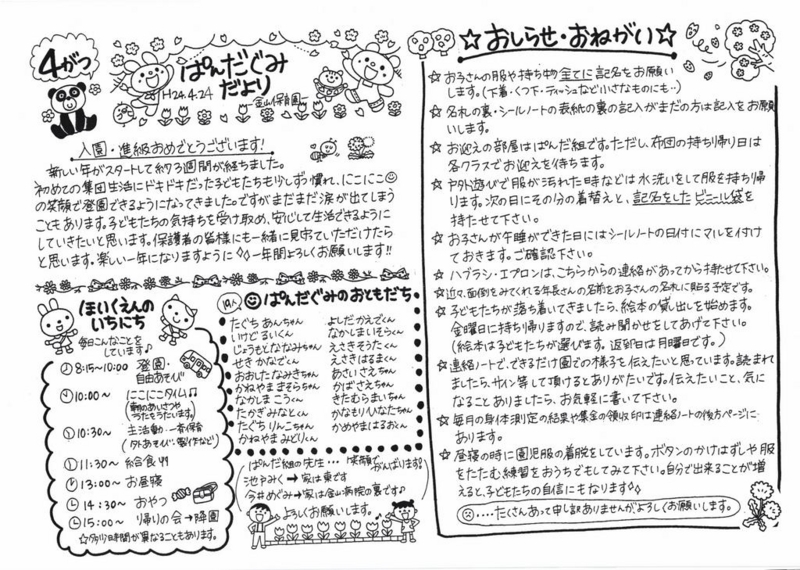 4がつ
ぱんだぐみ
だより
H24.4.24
金山保育園
入園・進級おめでとうございます!
新しい年がスタートして約3週間が経ちました。
初めての集団生活にドキドキだった子どもたちも少しずつ慣れ、にこにこ
の笑顔で登園できるようになってきました。ですがまだまだ涙が出てしまう
こともあります。子どもたちの気持ちを受け取め、安心して生活できるように
していきたいと思います。保護者の皆様にも一緒に見守っていただけたら
と思います。楽しい一年になりますように◇◇一年間よろしくお願いします!!
ほいくえんの
いちにち
毎日こんなことを
しています♪
8:15~10:00 登園・
自由あそび
10:00~ にこにこタイム♫
(朝のあいさつや
うたをうたいます)
10:30~ 主活動・一斉保育
(外あそび・製作など)
11:30~ 給食
13:00~ お昼寝
14:30~ おやつ
15:00~ 帰りの会→降園
☆夕方は時間が異なることもあります。
19人
ぱんだぐみのおともだち
たぐち あんちゃん
いけど るいくん
じょうもと ななみちゃん
せき かなでくん
おおした なみきちゃん
かねやま きぞらちゃん
なかしま こうくん
たかぎ みなとくん
たぐち りんこちゃん
かねやま みどりくん
よしだ かえでくん
なかしま いそらくん
えさき そうたくん
えさき はるまくん
あさい さえちゃん
かばさえちゃん
きたむら まいちゃん
かなもり ひなたちゃん
かめやま はるおくん
ぱんだ組の先生… 笑顔でがんばります!
池戸みく → 家は東です
今井めぐみ → 家は金山病院の裏です♪
よろしくお願いします。
☆おしらせ・おねがい☆
☆お子さんの服や持ち物全てに記名をお願い
します。(下着・くつ下・ティッシュなど小さなものにも…)
☆名札の裏・シールノートの表紙の裏の記入がまだの方は記入をお願
いします。
☆お迎えの部屋はぱんだ組です。ただし、布団の持ち帰り日は
各クラスでお迎えを待ちます。
☆外遊びで服が汚れた時などは水洗いをして服を持ち帰り
ます。次の日にその分の着替えと、記名をしたビニール袋を
持たせて下さい。
☆お子さんが午睡ができた日にはシールノートの日付にマルを付け
ておきます。ご確認下さい。
☆ハブラシ・エプロンは、こちらからの連絡があってから持たせて下さい。
☆近々、面倒をみてくれる年長さんの名前をお子さんの名札に貼る予定です。
☆子どもたちが落ち着いてきましたら、絵本の貸し出しを始めます。
金曜日に持ち帰りますので、読み聞かせをしてあげて下さい。
(絵本は子どもたちが選びます。返却日は月曜日です。)
☆連絡ノートで、できるだけ園での様子を伝えたいと思っています。読まれ
ましたら、サイン等して頂けるとありがたいです。伝えたいこと、気に
なることありましたら、お気軽に書いて下さい。
☆毎月の身体測定の結果や集金の領収印は連絡ノートの後ろページに
あります。
☆昼寝の時に園児服の着脱をしています。ボタンのかけはずしや服
をたたむ練習をおうちでもしてみて下さい。自分で出来ることが増
えると、子どもたちの自信にもなります◇◇
‥‥たくさんあって申し訳ありませんがよろしくお願いします。